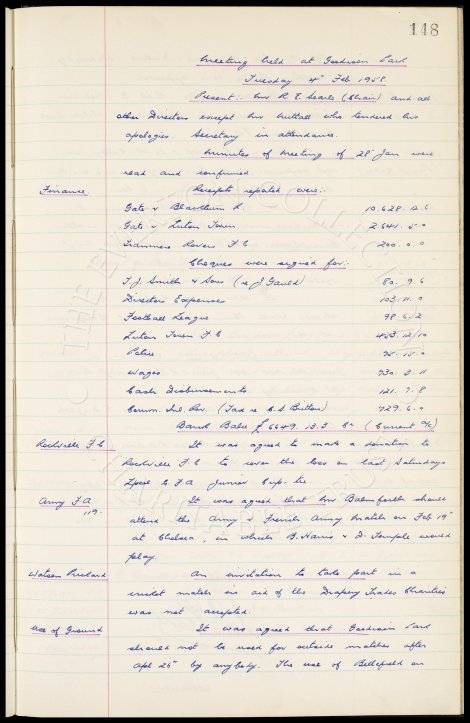 148
Meeting held at Goodison Park
Tuesday 4th Feb 1958
Present:- Mr R. E. Searle (Chair) and all
other Directors except Mr Nuttall who tendered his
apologies. Secretary in attendance.
Minutes of meeting of 28th Jan were
read and confirmed
Finance Receipts reported were:-
Gate v Blackburn R. 10.628.12.6
Gate v Luton Town 2.644.5.0
Tranmere Rovers F C 200.0.0
Cheques were signed for:-
T. J. Smith & Sons (re J Gauld) 80.9.6
Directors Expenses 103.11.0
Football League 98.6.2
Luton Town F C 453.12.10
Police 75.15.0
Wages 930.3.11
Cash Disbursements 121.7.8
Comm. Inl. Rev. (Tax re C. S. Britton) 729.6.0
Bank Balce £6649.13.3 Cr (Current a/c)
Rockville F.C It was agreed to make a donation to
Rockville F C to cover the loss on last Saturdays
Lpool C F A Junior Cup tie.
Army F A It was agreed that Mr Balmforth should
119.
attend the Army v French Army match on Feb 19th
at Chelsea, in which B. Harris & D. Temple would
play.
Watson Prickard An invitation to take part in a
cricket match in aid of the Drapery Trades Charities
was not accepted.
Use of Ground It was agreed that Goodison Park
should not be used for outside matches after
Apl 26th by anybody. The use of Bellefield on
THE EVERTON COLLECTION
CHARITABLE TRUST